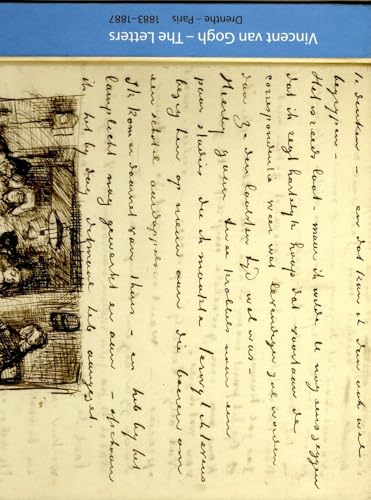 Vincent van Gogh – The Letters
Drenthe – Paris 1883–1887
te denken – en dat kan ik dan ook wel
begrijpen –
Het is reeds laat maar ik wilde U nog eens zeggen
dat ik regt hartelijk hoop dat voortaan de
correspondentie weer wat levendiger zal worden
dan ze den laatsten tijd wel was –
Hierbij gaan twee krabbels naar een
paar studies die ik maakte terwijl ik tevens
bezig ben op nieuw aan die boeren om
een schotel aardappels.
Ik kom er daarnet van thuis – en heb bij het
lamplicht nog gewerkt er aan – ofschoon
ik het bij dag ditmaal heb aangezet.